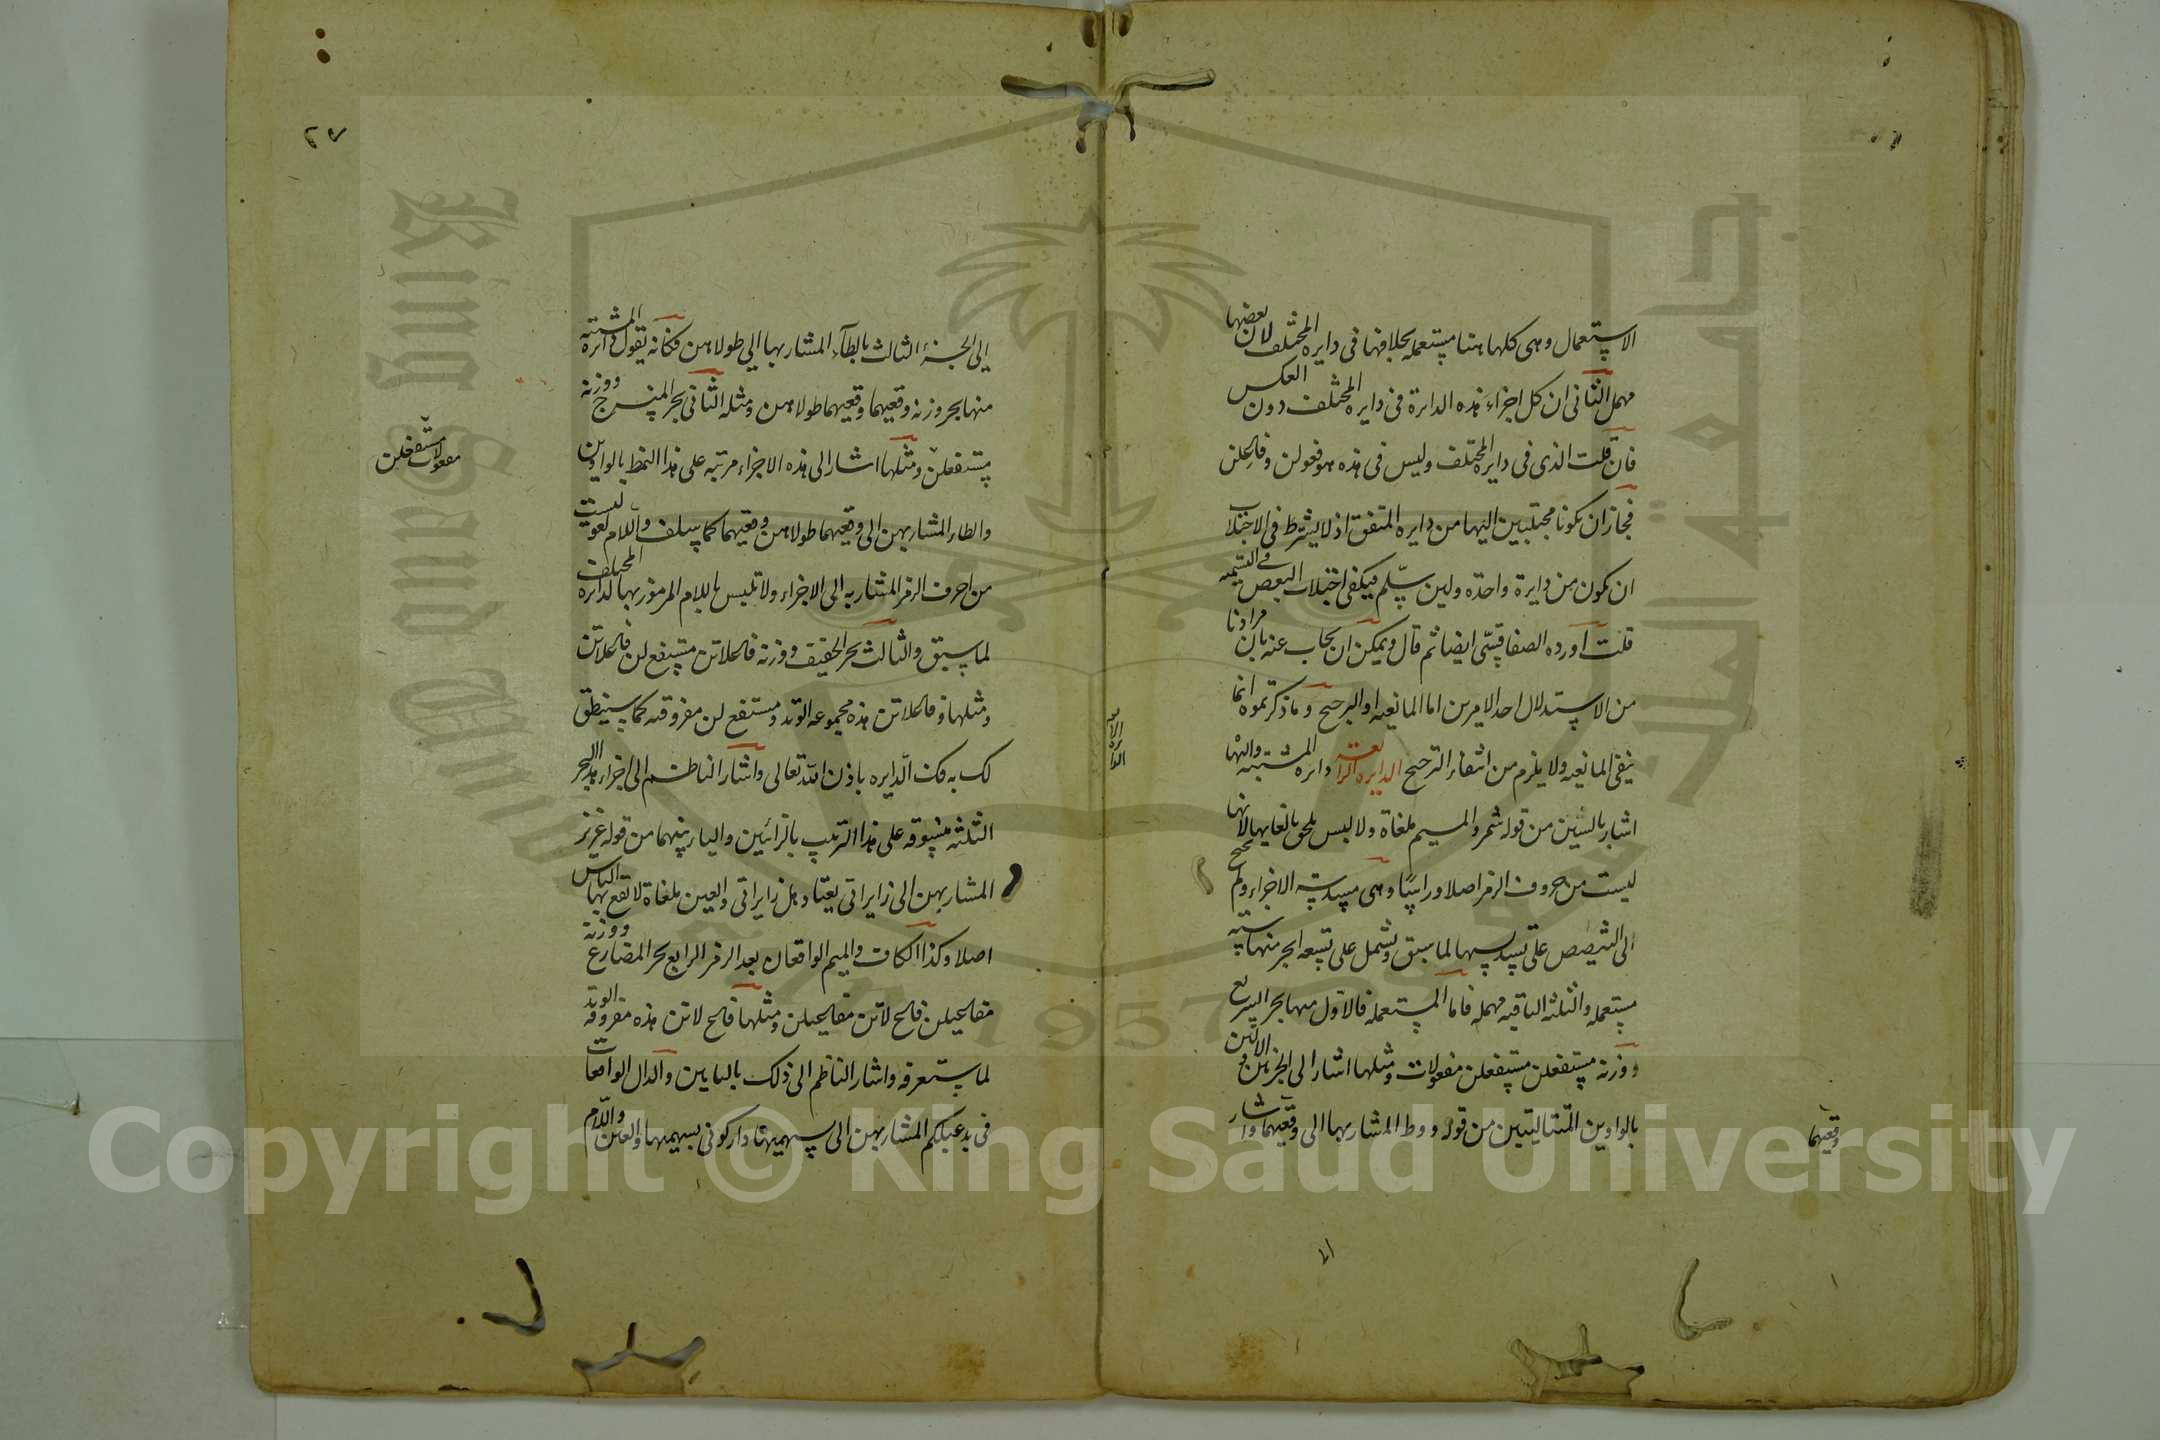 الاستعمال وهى كلها هنا مستعمله بخلافها فى دايره المختلف لان بعضها
مهمل الثانى ان كل اجزاء هذه الدايرة فى دايره المختلف دون العكس
فان قلت الذى فى دايره المختلف وليس فى هذه هو فعولن وفاعلن
فجاز ان يكونا مجتلبين اليها من دايره المتفق اذ لا يشترط فى الاجتلاب
ان يكون من دايرة واحدة ولين سلّم فيكفى اجتلاب البعض فى التسميه
قلت اورده الصفاقسى ايضا ثم قال ويمكن ان يجاب عنه بان مرادنا
من الاستدلال احد الامرين اما المانعيه او الترجيح وما ذكرتموه انما
ينفى المانعيه ولا يلزم من انتفاء الترجيح الدايره الرابعة دايره المشتبه والتها
اشار بالشين من قوله شمر والميم ملغاة ولا لبس يلحق بالغايها لانها
ليست من حروف الرمز اصلا وراسا وهى مسدسة الاجزاء ولم يحتج
الى التنصيص على تسديسها لما سبق وتشمل على تسعه ابحر منها سته
مستعمله والثلثه الباقيه مهمله فاما المستعمله فالاول منها بحر السريع
ووزنه مستفعلن مستفعلن مفعولات ومثلها اشار الى الجزءين الاولين
بالواوين المتتاليتين من قوله ووط المشار بهما الى وقعيهما واشار
وقعيهما
الدايرة الرابعة
٢٧
الى الجزء الثالث بالطاء المشار بها الى طولاهن فكانه يقول دايرة المشتبه
منها بحر وزنه وقعيهما وقعيهما طولاهن ومثله الثانى بحر المنسرح ووزنه
مستفعلن ومثلها اشار الى هذه الاجزاء مرتبه على هذا النمط بالواوين
مفعولات مستفعلن
والطاء المشار بهن الى وقعيهما طولاهن وقعيهما كما سلف واللام لغو ليست
من احرف الرمز المشار به الى الاجزاء ولا تلبس باللام المرموز بها لدايره المختلف
لما سبق والثالث بحر الخفيف ووزنه فاعلاتن مستفع لن فاعلاتن
ومثلها وفاعلاتن هذه مجموعه الوتد ومستفع لن مفروقته كما سينطق
لك به فك الدايره باذن الله تعالى واشار الناظم الى اجزاء هذا البحر
الثلثه مسوقه على هذا الترتيب بالزائين والياء بينهما من قوله عزيز
المشار بهن الى زايراتى يعتاد هل زايراتى والعين ملغاة لا تقع بها الباس
اصلا وكذا الكاف والميم الواقعان بعد الرمز الرابع بحر المضارع ووزنه
مفاعيلن فاع لاتن مفاعيلن ومثلها فاع لاتن هذه مفروقه الوتد
لما ستعرفه واشار الناظم الى ذلك بالبايين والدال الواقعات
فى بدعبلكم المشار بهن الى بسهميهما دار كونى بسهميهما والعين واللام